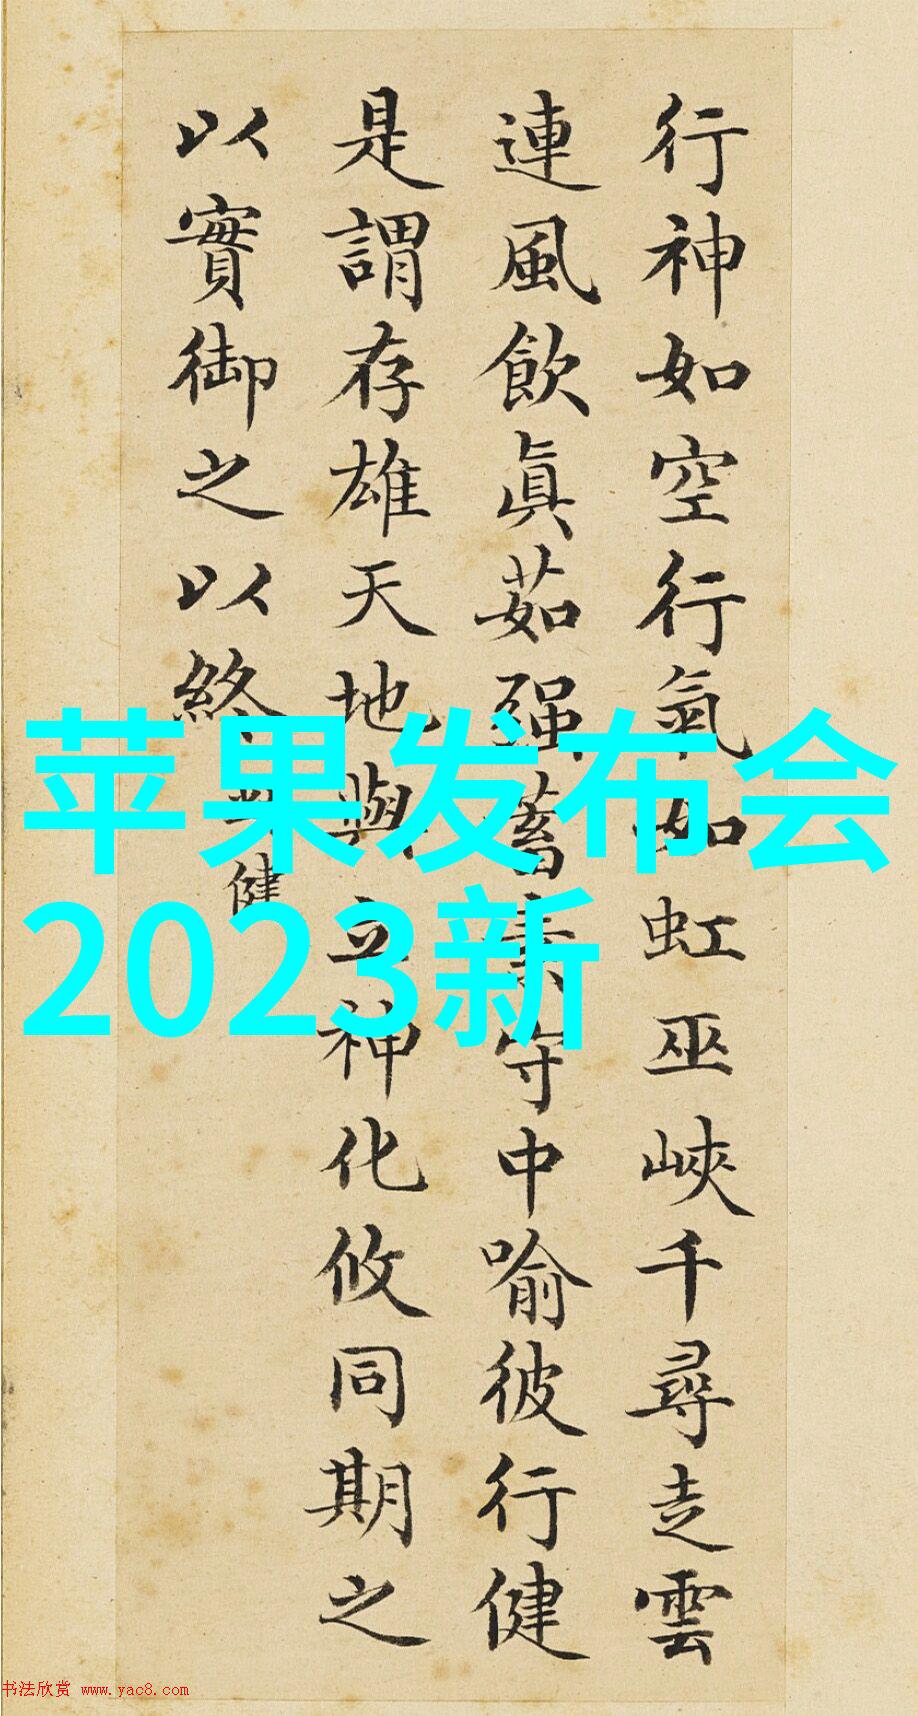 行神如空行氣如虹巫峽千尋走雲
連風飲眞茹强蓄素守中喻彼行健
是謂存雄天地與立神化攸同期之
以實御之以終
健
苹果发布会
2023新
书法欣赏 www.yac8.com